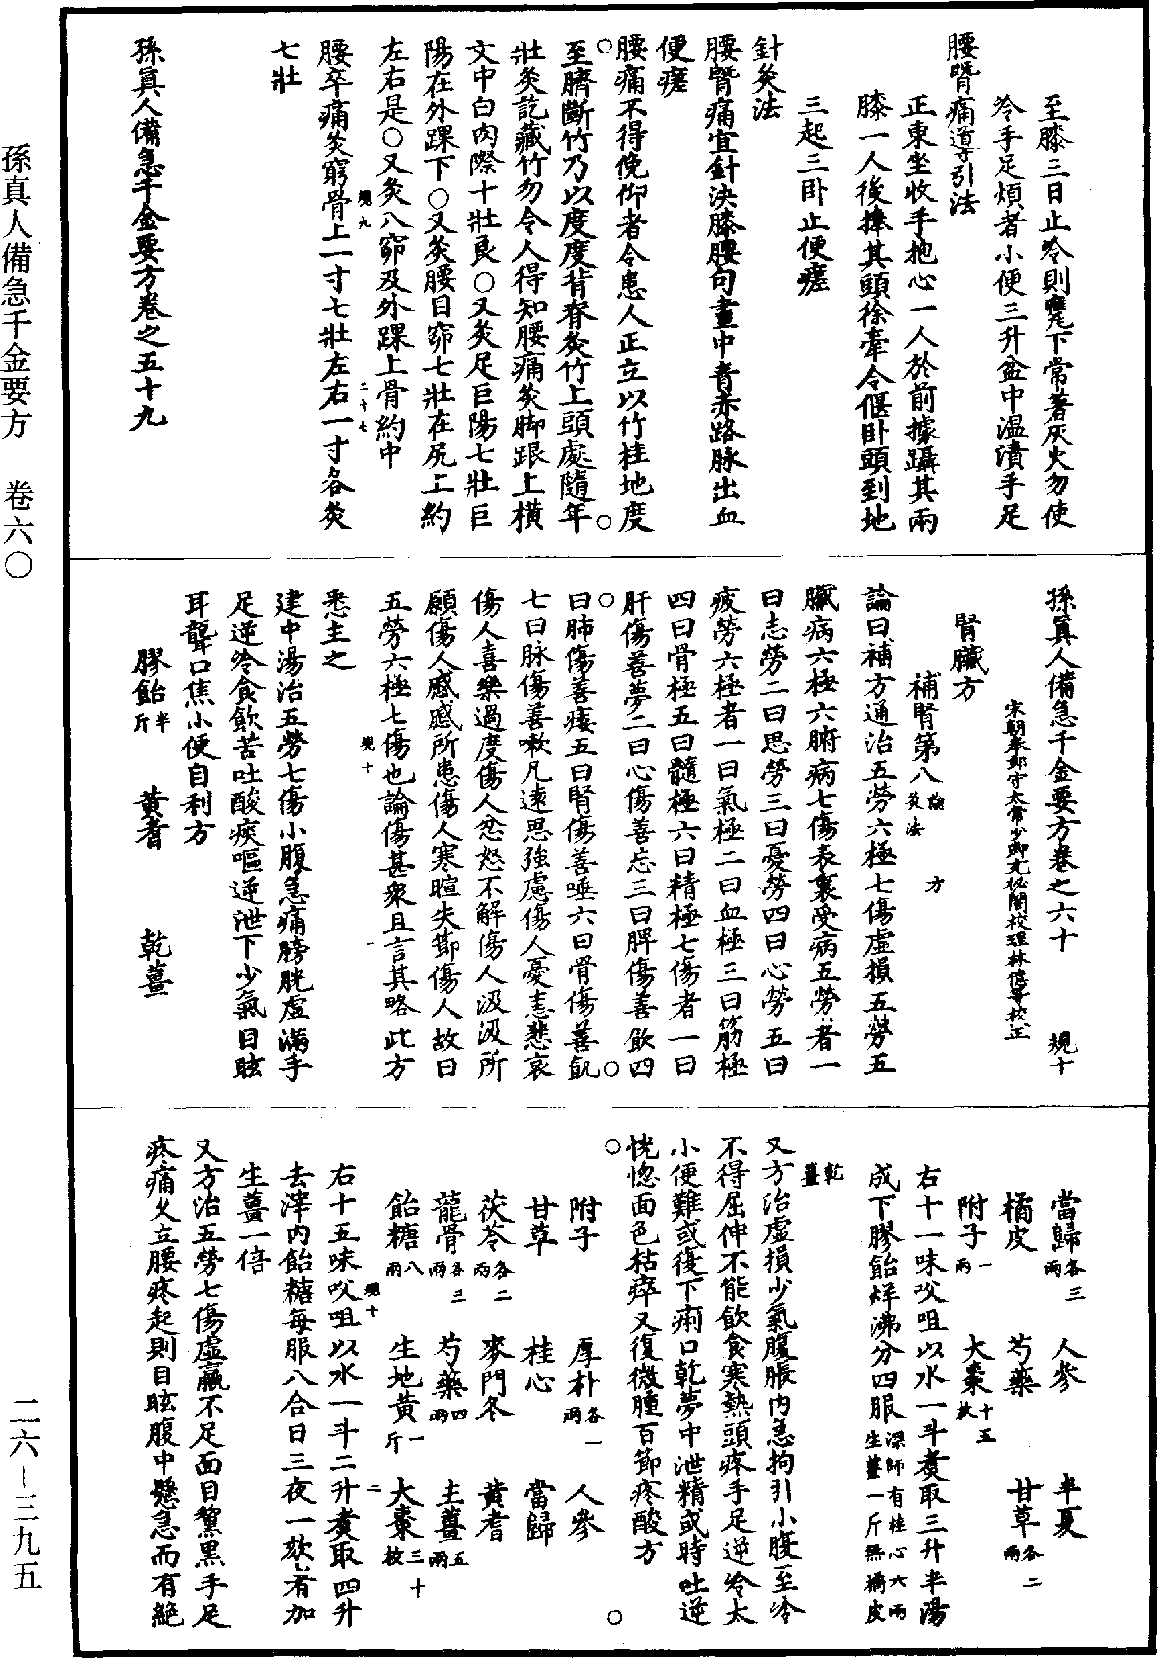 孫真人備急千金要方　卷六〇
二六－三九五
至膝三日止冷則甕下常著灰火勿使
冷手足煩者小便三升盆中温漬手足
腰腎痛導引法
正東坐收手抱心一人於前據躡其兩
膝一人後捧其頭徐牽令偃卧頭到地
三起三卧止便瘥
針灸法
腰腎痛宜針決膝腰句畫中青赤路脉出血
便瘥
腰痛不得俛仰者令患人正立以竹柱地度
至臍斷竹乃以度度背脊灸竹上頭處隨年
壯灸訖藏竹勿令人得知腰痛灸脚跟上橫
文中白肉際十壯良○又灸足巨陽七壯巨
陽在外踝下○又灸腰目窌七壯在尻上約
左右是○又灸八窌及外踝上骨約中
規九　二十七
腰卒痛灸窮骨上一寸七壯左右一寸各灸
七壯
孫真人備急千金要方卷之五十九
孫真人備急千金要方卷之六十　規十
宋朝奉郎守太常少卿充秘閣校理林億等校正
腎臟方
補腎第八論　方　灸法
論曰補方通治五勞六極七傷虛損五勞五
臟病六極六腑病七傷表裏受病五勞者一
曰志勞二曰思勞三曰憂勞四曰心勞五曰
疲勞六極者一曰氣極二曰血極三曰筋極
四曰骨極五曰髓極六曰精極七傷者一曰
肝傷善夢二曰心傷善忘三曰脾傷善飲四
曰肺傷善痿五曰腎傷善唾六曰骨傷善飢
七曰脉傷善嗽凡遠思強慮傷人憂恚悲哀
傷人喜樂過度傷人忿怒不解傷人汲汲所
願傷人慼慼所患傷人寒暄失節傷人故曰
五勞六極七傷也論傷甚衆且言其略此方
規十　一
悉主之
建中湯治五勞七傷小腹急痛膀胱虛滿手
足逆冷食飲苦吐酸痰嘔逆泄下少氣目眩
耳聾口焦小便自利方
膠飴半斤　黃耆　乾薑
當歸各三兩　人參　半夏
橘皮　芍藥　甘草各二兩
附子一兩　大棗十五枚
右十一味㕮咀以水一斗煮取三升半湯
成下膠飴烊沸分四服深師有桂心六兩生薑一斤無橘皮
乾薑
又方治虛損少氣腹脹内急拘引小腹至冷
不得屈伸不能飲食寒熱頭疼手足逆冷太
小便難或復下痢口乾夢中泄精或時吐逆
恍惚面色枯瘁又復微腫百節疼酸方
附子　厚朴各一兩　人參
甘草　桂心　當歸
茯苓各二兩　麥門冬　黃耆
龍骨各三兩　芍藥四兩　生薑五兩
飴糖八兩　生地黃一斤　大棗三十枚
規十　二
右十五味㕮咀以水一斗二升煮取四升
去滓内飴糖每服八合日三夜一欬者加
生薑一倍
又方治五勞七傷虛羸不足面目黧黑手足
疼痛久立腰疼起則目眩腹中懸急而有絕